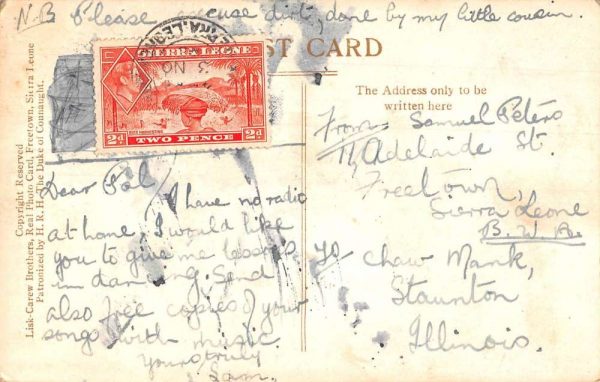 N.B Please excuse dirt, done by my little cousin.
POST CARD
SIERRA LEONE
RICE HARVESTING
2d TWO PENCE 2d
3 NO
Copyright Reserved
Lisk-Carew Brothers, Real Photo Card, Freetown, Sierra Leone
Patronized by H. R. H. The Duke of Connaught.
The Address only to be
written here
Dear Pal
I have no radio
at home, I would like
you to give me lessons
in dancing, Send
also free copies of your
songs with music
Yours truly
Sam.
From Samuel Peters
11 Adelaide St.
Freetown,
Sierra Leone
B.W.A.
To Chaw Mank,
Staunton
Illinois.